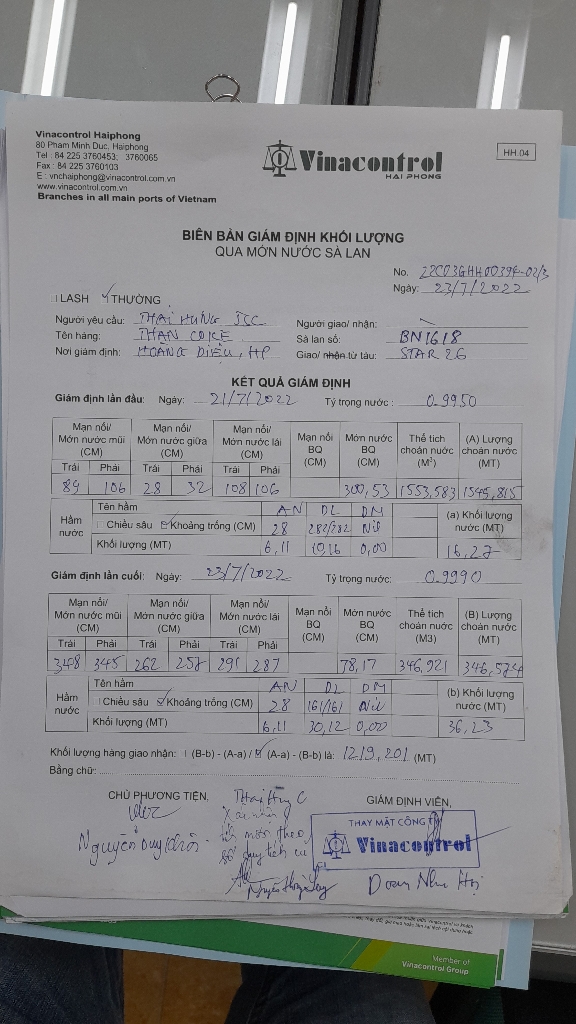 Vinacontrol Haiphong
80 Pham Minh Duc, Haiphong
Tel : 84 225 3760453; 3760065
Fax : 84 225 3760103
E : vnchaiphong@vinacontrol.com.vn
www.vinacontrol.com.vn
Branches in all main ports of Vietnam
Vinacontrol
HAI PHONG
HH.04
BIÊN BẢN GIÁM ĐỊNH KHỐI LƯỢNG
QUA MỚN NƯỚC SÀ LAN
No. 22C03GHH00394-02/3
Ngày: 23/7/2022
LASH THƯỜNG
Người yêu cầu: THAI HUNG JSC
Người giao/ nhận:
Tên hàng: THAN COKE
Sà lan số: BN1618
Nơi giám định: HOANG DIEU, HP
Giao/ nhận từ tàu: STAR 26
KẾT QUẢ GIÁM ĐỊNH
Giám định lần đầu: Ngày: 21/7/2022 Tỷ trọng nước : 0.9950
Mạn nổi/ Mớn nước mũi (CM) Mạn nổi/ Mớn nước giữa (CM) Mạn nổi/ Mớn nước lái (CM) Mạn nổi BQ (CM) Mớn nước BQ (CM) Thể tích choán nước (M3) (A) Lượng choán nước (MT)
Trái Phải Trái Phải Trái Phải
89 106 28 32 108 106 300,53 1553,583 1545,815
Hầm nước Tên hầm AN DL DM (a) Khối lượng nước (MT)
Chiều sâu Khoảng trống (CM) 28 282/282 Nil
Khối lượng (MT) 6,11 10,16 0,00 16,27
Giám định lần cuối: Ngày: 23/7/2022 Tỷ trọng nước: 0.9990
Mạn nổi/ Mớn nước mũi (CM) Mạn nổi/ Mớn nước giữa (CM) Mạn nổi/ Mớn nước lái (CM) Mạn nổi BQ (CM) Mớn nước BQ (CM) Thể tích choán nước (M3) (B) Lượng choán nước (MT)
Trái Phải Trái Phải Trái Phải
345 262 257 291 287 78,17 346,921 346,574
Hầm nước Tên hầm AN DL DM (b) Khối lượng nước (MT)
Chiều sâu Khoảng trống (CM) 28 161/161 Nil
Khối lượng (MT) 6,11 30,12 0,00 36,23
Khối lượng hàng giao nhận: (B-b) - (A-a) / (A-a) - (B-b) là: 1219,201 (MT)
Bằng chữ:
CHỦ PHƯƠNG TIỆN, GIÁM ĐỊNH VIÊN,
THAY MẶT CÔNG TY
Vinacontrol
Doan Nhu
Member of
Vinacontrol Group